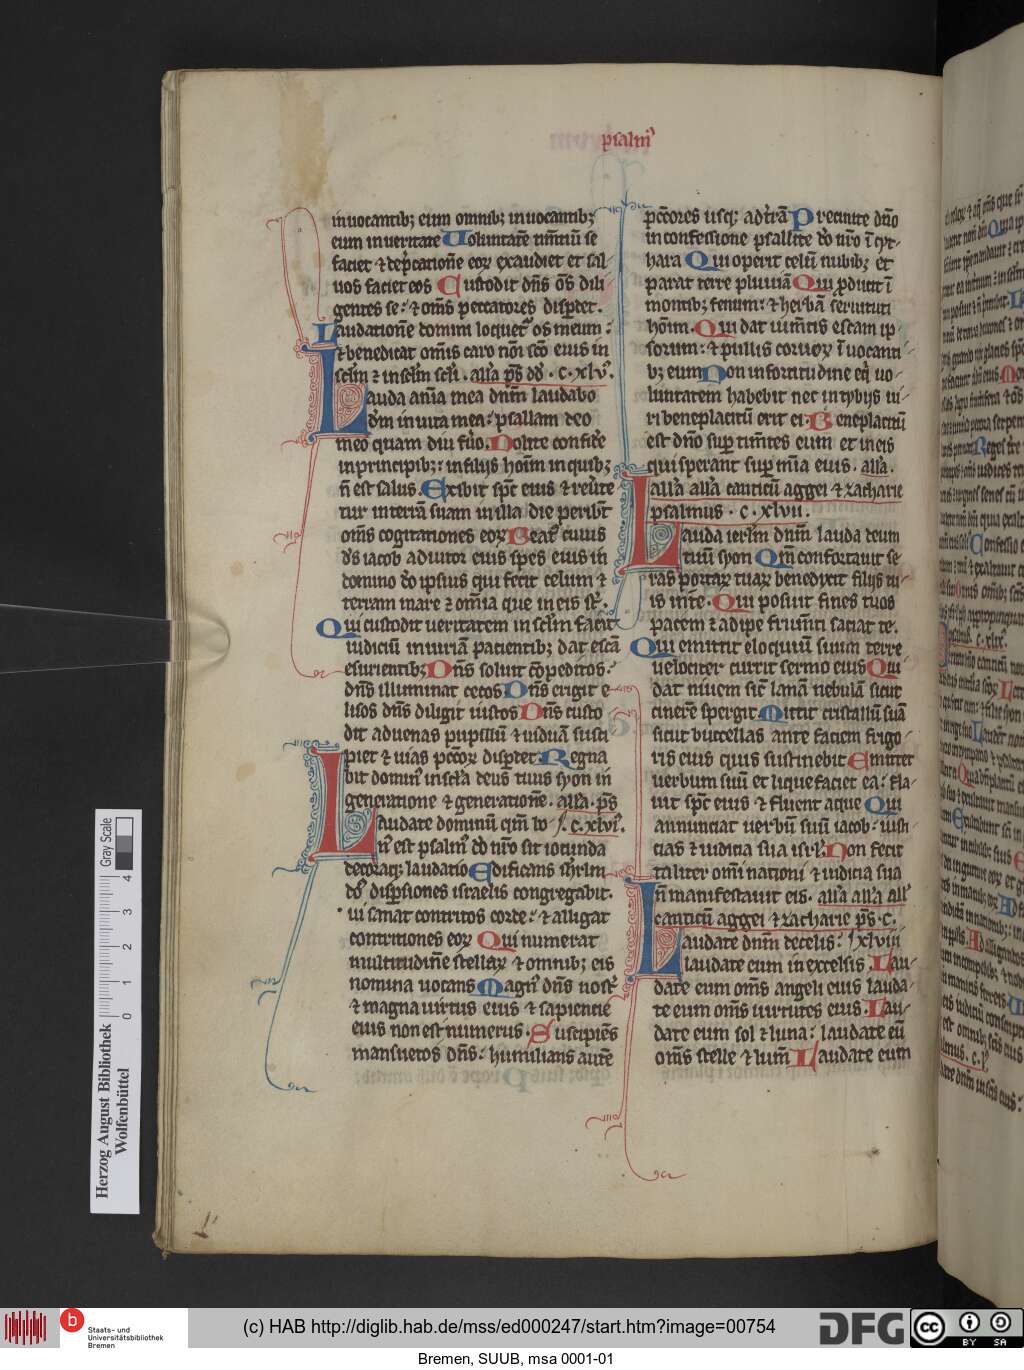 psalmꝰ
inuocantibꝫ eum omnibꝫ inuocantibꝫ
eum in ueritate Uoluntatē timētiū se
faciet ⁊ dep̄cationē eoꝝ exaudiet et sal-
uos faciet eos Custodit dn̄s om̄s dili
gentes se: ⁊ om̄s peccatores disp̄det.
Laudationē domini loquet᷑ os meum:
⁊ benedicat omīs caro nōi scō eius in
sclm̄ ⁊ in sclm̄ scli. all'a p̄s dd̄. c. xlv.
Lauda anīa mea dnm̄ laudabo
dm̄ in uita mea: psallam deo
meo quam diu fūo. Nolite confidē
in principibꝫ: in filijs hoīm in quibꝫ
n̄ est salus. Exibit spc̄ eius ⁊ reūtet᷑
tur in terrā suam in illa die peribt̄
om̄s cogitationes eoꝝ Beatꝰ cuius
ds̄ iacob adiutor eius spes eius in
domino dō ipsius qui fecit celum ⁊
terram mare ⁊ omīa que in eis st̄.
Qui custodit ueritatem in sclm̄ facit
iudiciū iniuriā patientibꝫ dat escā
esurientibꝫ Dn̄s soluit cōpeditos:
dn̄s illuminat cecos Dn̄s erigit e-
lisos dn̄s diligit iustos Dn̄s custo
dit aduenas pupillū ⁊ uiduā susci
piet ⁊ uias pc̄coꝝ disp̄det Regna
bit dominꝰ in scl'a deus tuus syon in
generatione ⁊ generationē. all'a. p̄s
Laudate dominū qm̄ bo . c. xlvi.
nꝰ est psalmꝰ dō nr̄o sit iocunda
decoraqꝫ laudatio Edificans ihrlm̄
dō disp̄siones israelis congregabit.
ui sanat contritos corde: ⁊ alligat
contritiones eoꝝ Qui numerat
multitudinē stellaꝝ ⁊ omnibꝫ eis
nomina uocans Magnꝰ dn̄s nostꝰ
⁊ magna uirtus eius ⁊ sapientie
eius non est numerus. Suscipiēs
mansuetos dn̄s: humilians autē
pc̄cores usqꝫ ad t̄rā Precinite dn̄o
in confessione psallite dō nr̄o ī cyt-
hara Qui operit celū nubibꝫ et
parat terre pluuiā Qui ꝓducit ī
montibꝫ fenum: ⁊ herbā seruituti
hoīm. Qui dat iumētis escam ip-
sorum: ⁊ pullis coruoꝝ ī uocanti-
bꝫ eum Non in fortitudine eq̄i uo-
luntatem habebit nec in tybijs ui-
ri beneplacitū erit ei. Beneplacitū
est dn̄o sup̄ timētes eum et in eis
qui sperant sup̄ mīa eius. all'a.
all'a all'a canticū aggei ⁊ zacharie
psalmus. c. xlvii.
Lauda ierlm̄ dnm̄ lauda deum
tuū syon Qm̄ confortauit se
ras portaꝝ tuaꝝ benedixit filijs tu-
is in te. Qui posuit fines tuos
pacem ⁊ adipe frumēti saciat te.
Qui emittit eloquiū suum terre
uelociter currit sermo eius Qui
dat niuem sic̄ lanā nebulā sicut
cinerē spergit Mittit cristallū suā
sicut buccellas ante faciem frigo-
ris eius quis sustinebit Emittet
uerbum suū et liquefaciet ea: fla-
uit spc̄ eius ⁊ fluent aque Qui
annunciat uerbū suū iacob: iusti
cias ⁊ iudicia sua isrl' Non fecit
taliter omī nationi ⁊ iudicia sua
n̄ manifestauit eis. all'a all'a all'
canticū aggei ⁊ zacharie p̄s. c.
Laudate dnm̄ de celis: xlviii
laudate eum in excelsis Lau-
date eum om̄s angeli eius lauda-
te eum om̄s uirtutes eius. Lau-
date eum sol ⁊ luna: laudate eū
om̄s stelle ⁊ lum̄ Laudate eum
Gray Scale
4
3
2
1
0
Herzog August Bibliothek
Wolfenbüttel
b
Staats- und
Universitätsbibliothek
Bremen
(c) HAB http://diglib.hab.de/mss/ed000247/start.htm?image=00754
DFG
cc
BY SA
Bremen, SUUB, msa 0001-01